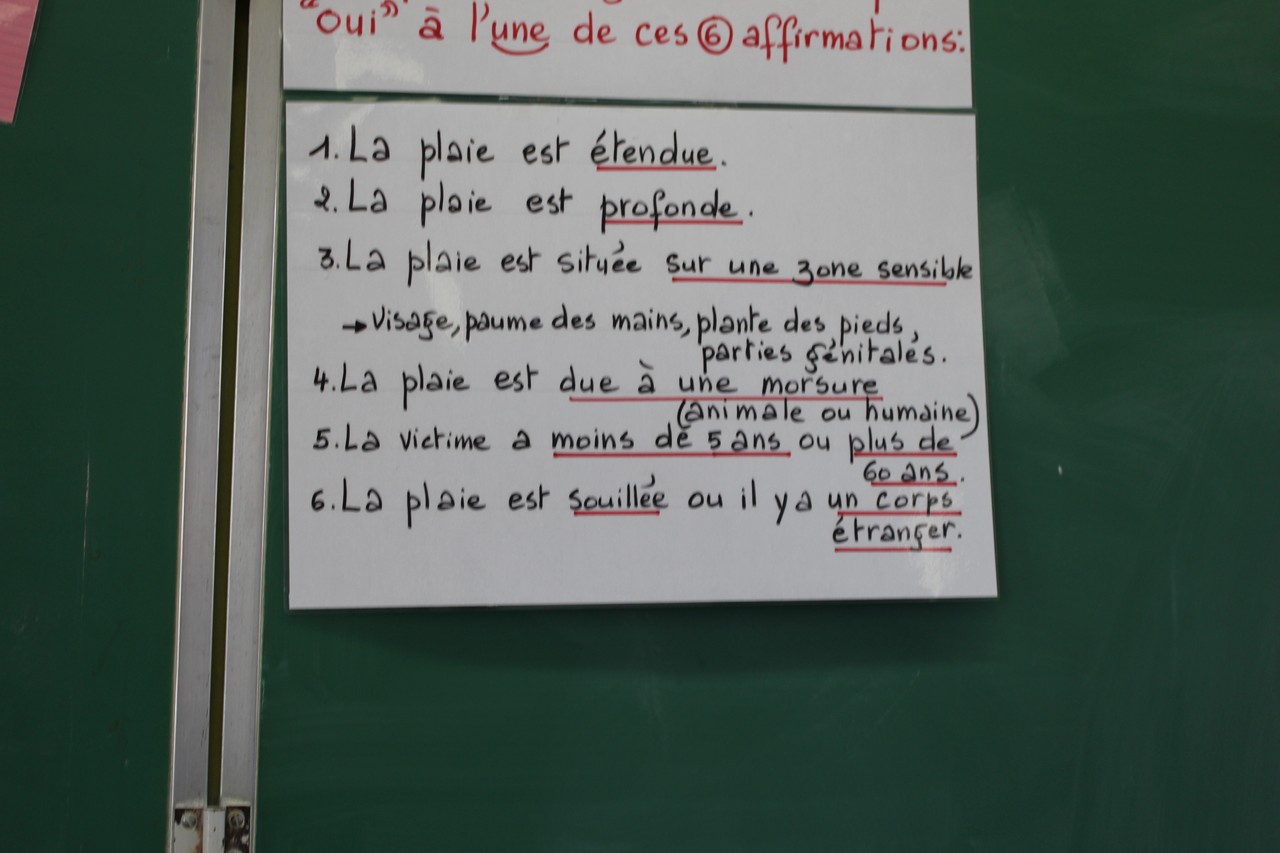 "oui" à l'une de ces 6 affirmations:
1. La plaie est étendue.
2. La plaie est profonde.
3. La plaie est située sur une zone sensible
→ Visage, paume des mains, plante des pieds,
parties génitales.
4. La plaie est due à une morsure
(animale ou humaine)
5. La victime a moins de 5 ans ou plus de
60 ans.
6. La plaie est souillée ou il y a un corps
étranger.